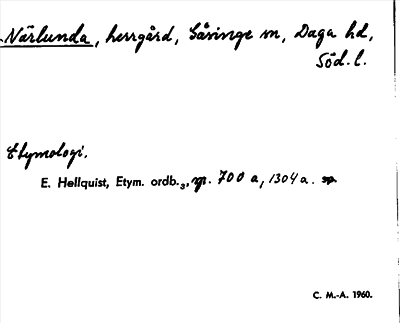 Närlunda, herrgård, Gåsinge sn, Daga hd,
Söd. l.
Etymologi.
E. Hellquist, Etym. ordb.₃, 700 a, 1304 a.
C. M.-A. 1960.